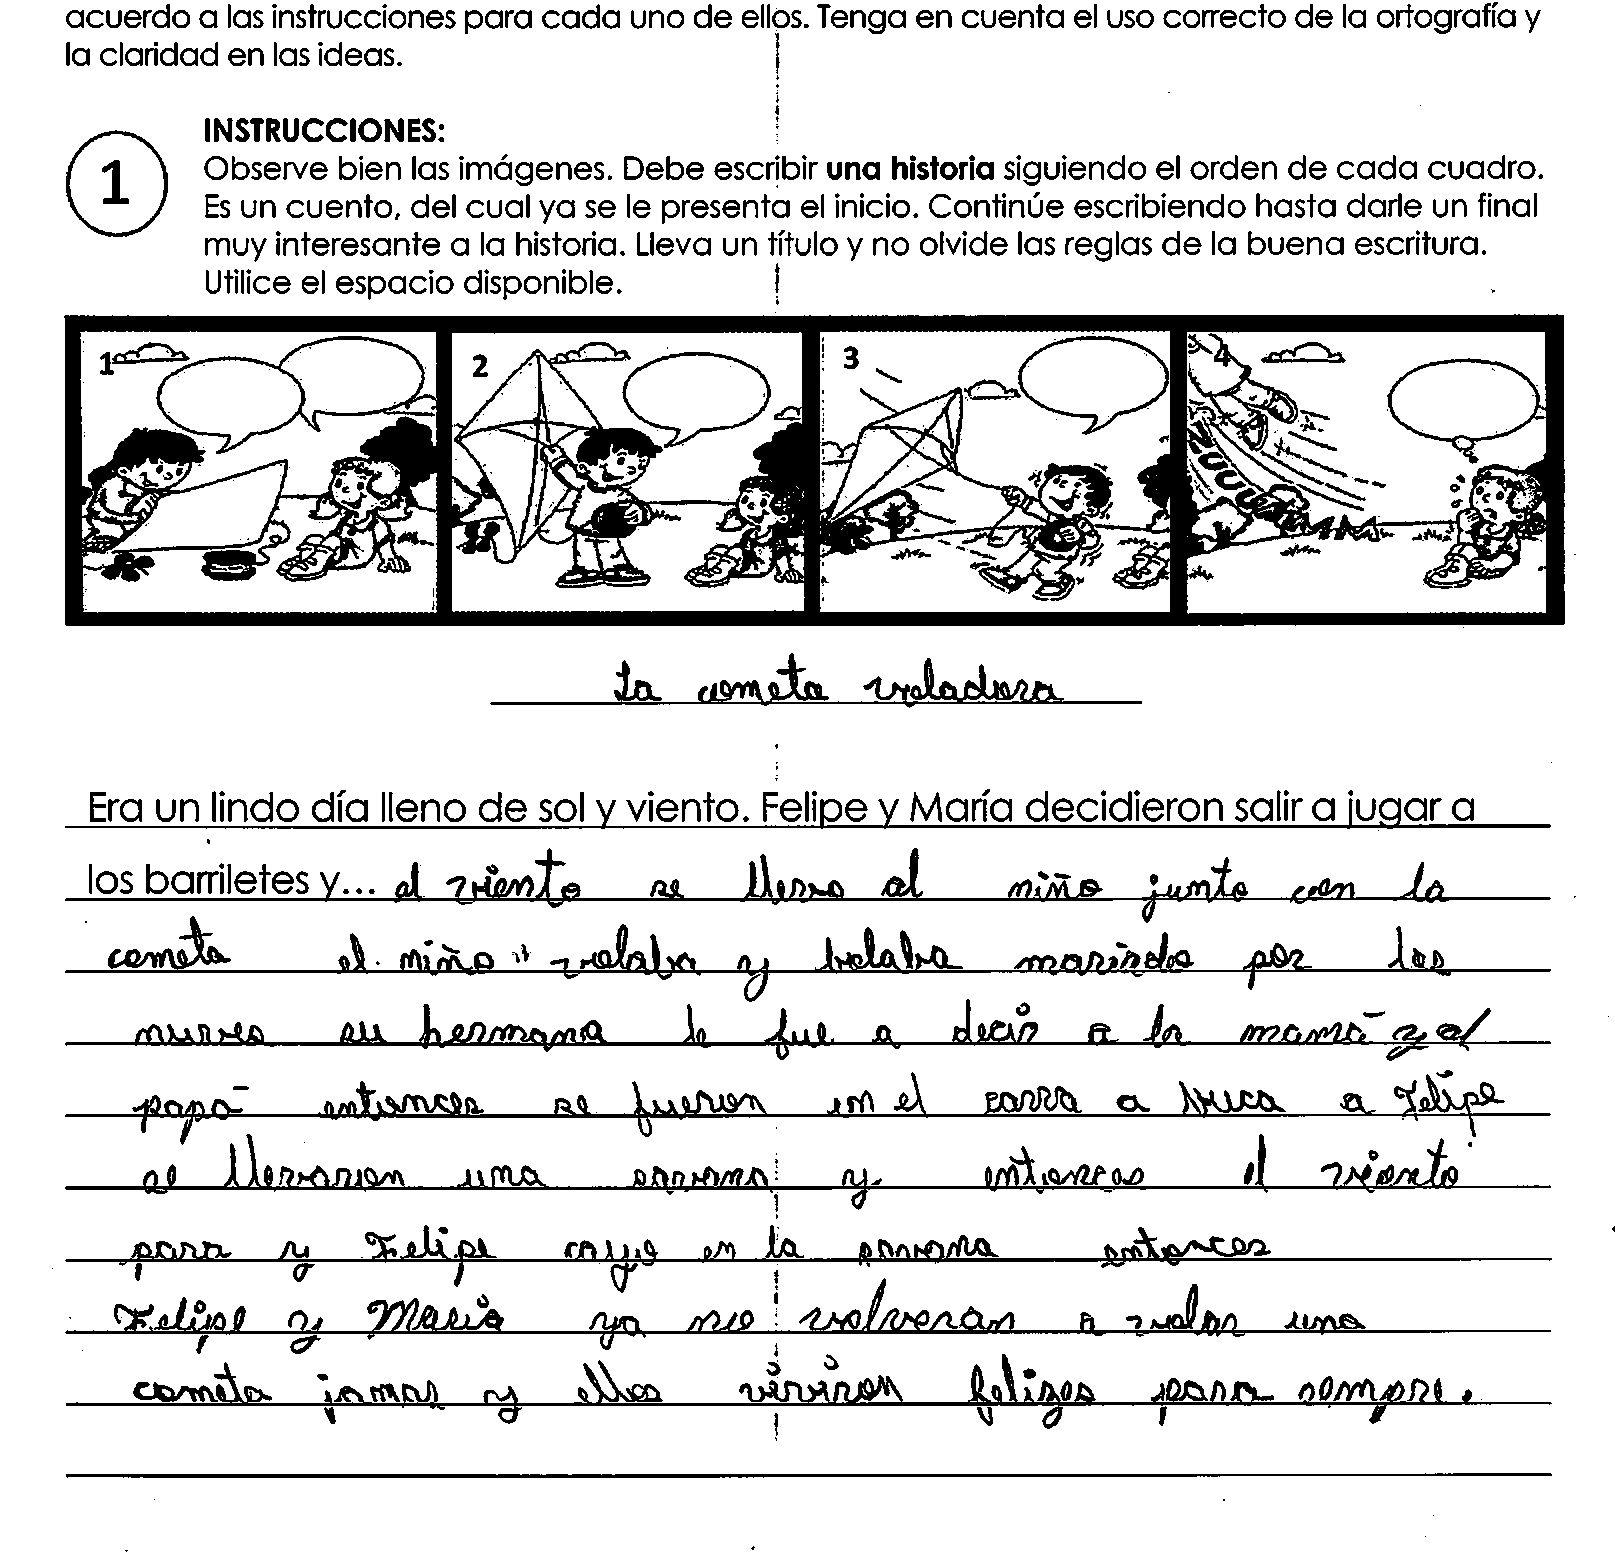 acuerdo a las instrucciones para cada uno de ellos. Tenga en cuenta el uso correcto de la ortografía y
la claridad en las ideas.
INSTRUCCIONES:
1
Observe bien las imágenes. Debe escribir una historia siguiendo el orden de cada cuadro.
Es un cuento, del cual ya se le presenta el inicio. Continúe escribiendo hasta darle un final
muy interesante a la historia. Lleva un título y no olvide las reglas de la buena escritura.
Utilice el espacio disponible.
1 2 3 4
ZUUUUMMMM
La cometa voladora
Era un lindo día lleno de sol y viento. Felipe y María decidieron salir a jugar a
los barriletes y... el viento se llevo al niño junto con la
cometa el niño volaba y bolaba mariado por las
nuves su hermana le fue a decir a la mamá y al
papá entonces se fueron en el carro a buca a Felipe
se llevaron una savana y entonces el viento
para y Felipe cayo en la savana entonces
Felipe y María ya no volveran a volar una
cometa jamas y ellos viviron felizes para sempre.